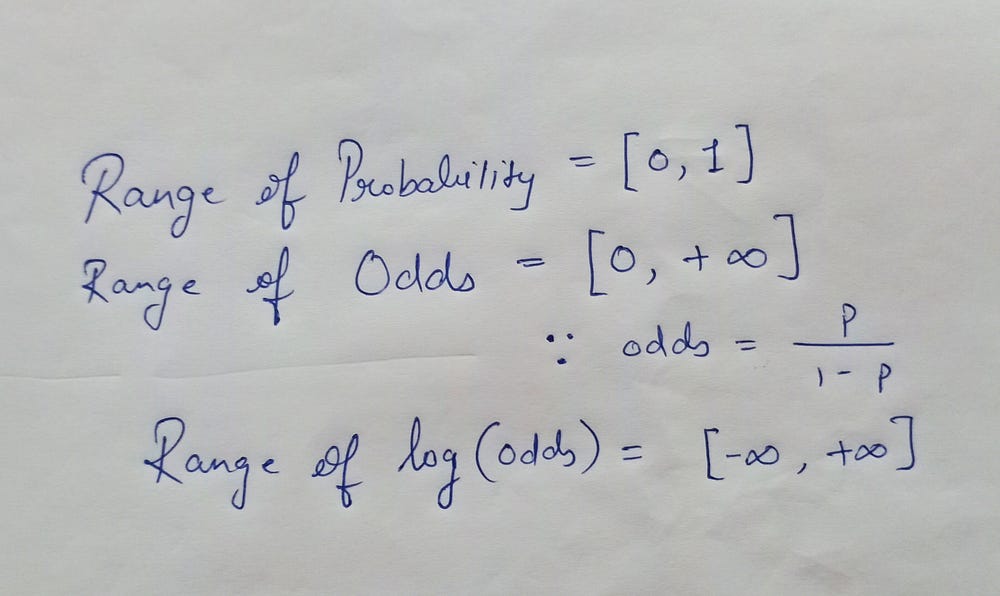 Range of Probability = [0, 1]
Range of Odds = [0, +∞]
∵ odds = p / 1 - p
Range of log(odds) = [-∞, +∞]